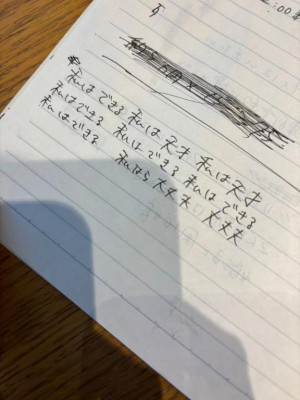 :00
私はできる 私は天才 私は天才
私はできる 私はできる 私はできる
私はできる 私なら大丈夫 大丈夫